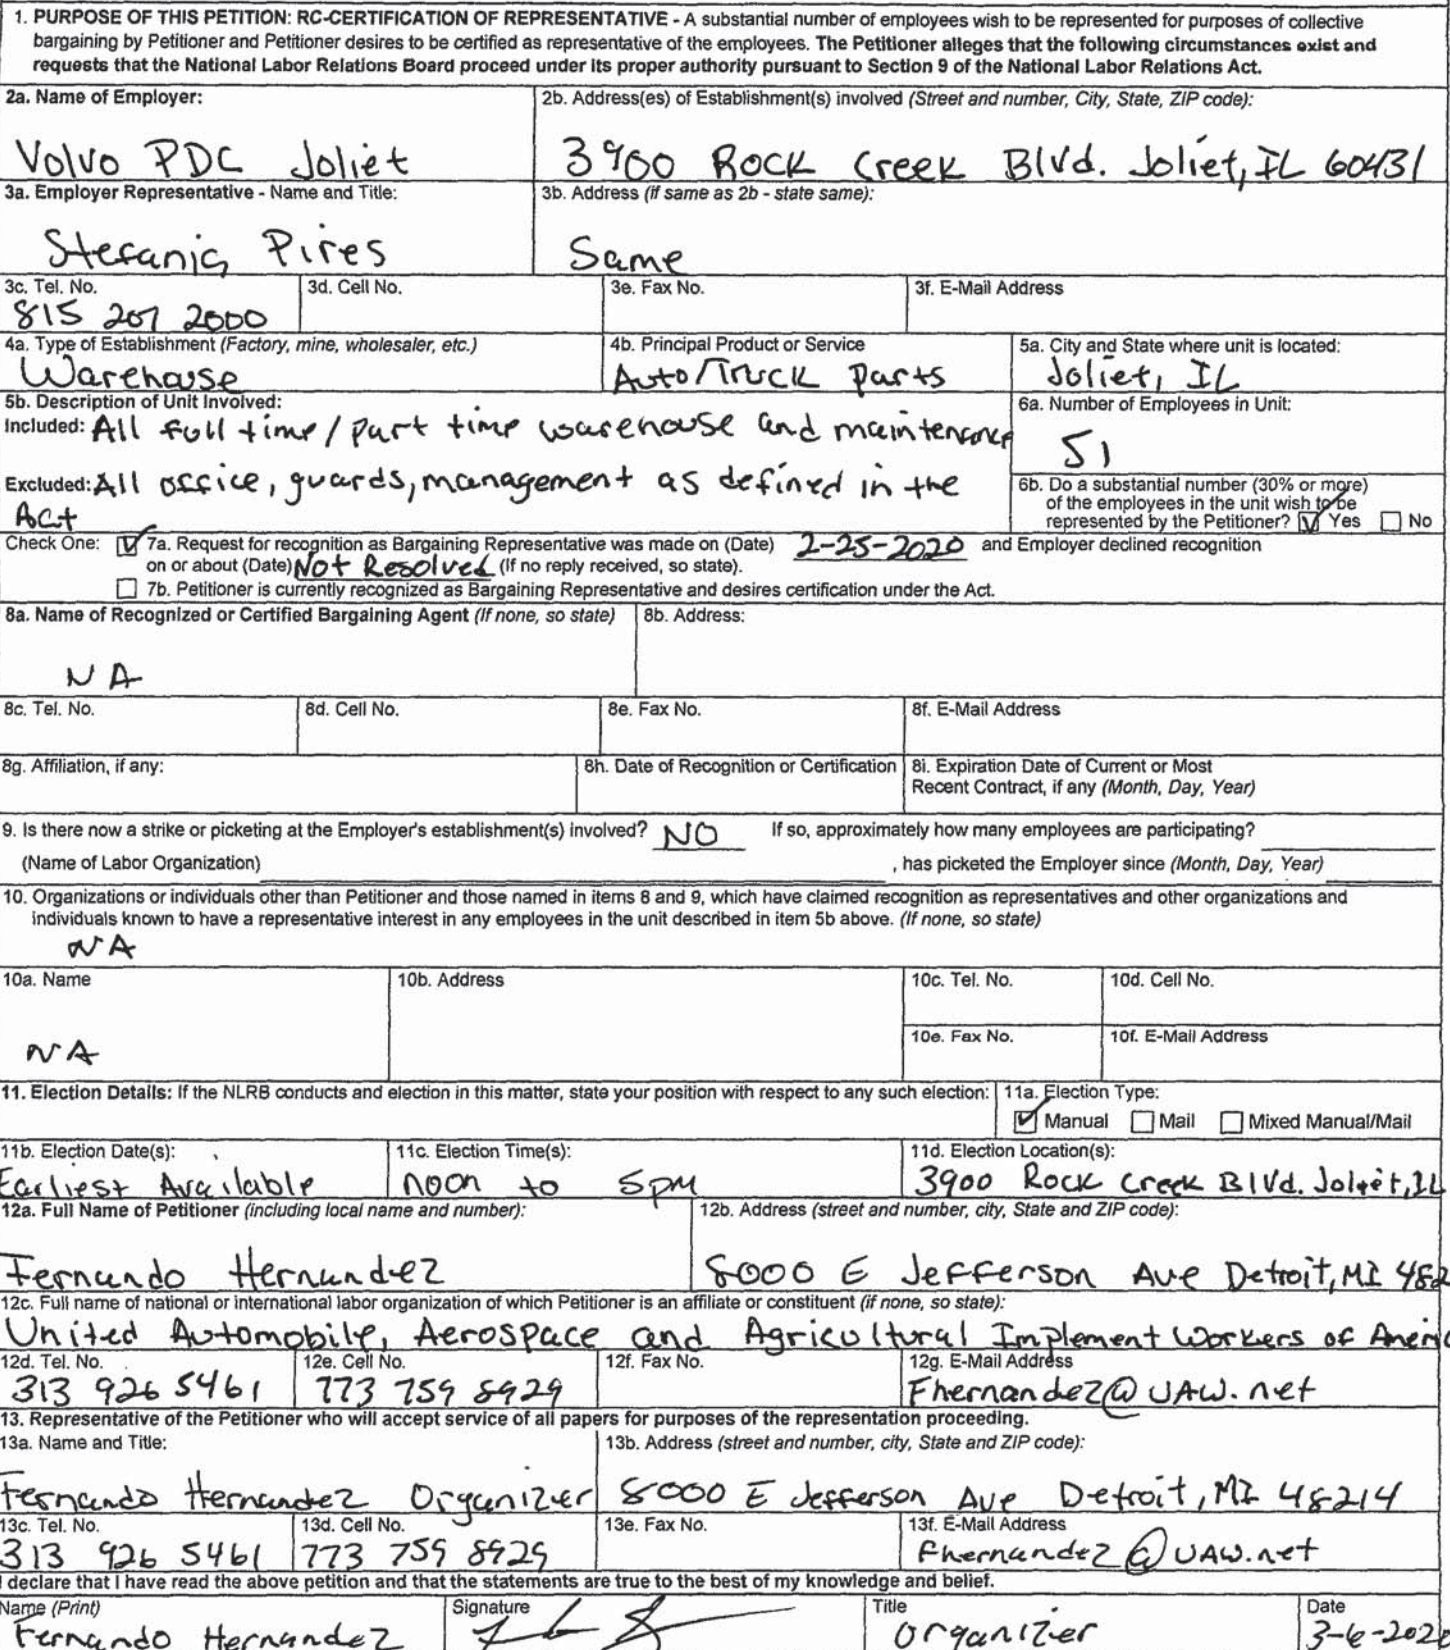 1. PURPOSE OF THIS PETITION: RC-CERTIFICATION OF REPRESENTATIVE - A substantial number of employees wish to be represented for purposes of collective
bargaining by Petitioner and Petitioner desires to be certified as representative of the employees. The Petitioner alleges that the following circumstances exist and
requests that the National Labor Relations Board proceed under its proper authority pursuant to Section 9 of the National Labor Relations Act.
2a. Name of Employer:
Volvo PDC Joliet
2b. Address(es) of Establishment(s) involved (Street and number, City, State, ZIP code):
3900 Rock Creek Blvd. Joliet, IL 60431
3a. Employer Representative - Name and Title:
Stefania Pires
3b. Address (if same as 2b - state same):
Same
3c. Tel. No.
815 207 2000
3d. Cell No.
3e. Fax No.
3f. E-Mail Address
4a. Type of Establishment (Factory, mine, wholesaler, etc.)
Warehouse
4b. Principal Product or Service
Auto/Truck Parts
5a. City and State where unit is located:
Joliet, IL
5b. Description of Unit Involved:
Included: All full time/part time warehouse and maintenance
Excluded: All office, guards, management as defined in the
Act
6a. Number of Employees in Unit:
51
6b. Do a substantial number (30% or more)
of the employees in the unit wish to be
represented by the Petitioner? Yes No
Check One: 7a. Request for recognition as Bargaining Representative was made on (Date) 2-25-2020 and Employer declined recognition
on or about (Date) Not Resolved (If no reply received, so state).
7b. Petitioner is currently recognized as Bargaining Representative and desires certification under the Act.
8a. Name of Recognized or Certified Bargaining Agent (If none, so state)
NA
8b. Address:
8c. Tel. No.
8d. Cell No.
8e. Fax No.
8f. E-Mail Address
8g. Affiliation, if any:
8h. Date of Recognition or Certification
8i. Expiration Date of Current or Most
Recent Contract, if any (Month, Day, Year)
9. Is there now a strike or picketing at the Employer's establishment(s) involved? NO If so, approximately how many employees are participating?
(Name of Labor Organization) , has picketed the Employer since (Month, Day, Year)
10. Organizations or individuals other than Petitioner and those named in items 8 and 9, which have claimed recognition as representatives and other organizations and
individuals known to have a representative interest in any employees in the unit described in item 5b above. (If none, so state)
NA
10a. Name
NA
10b. Address
10c. Tel. No.
10d. Cell No.
10e. Fax No.
10f. E-Mail Address
11. Election Details: If the NLRB conducts and election in this matter, state your position with respect to any such election:
11a. Election Type:
Manual Mail Mixed Manual/Mail
11b. Election Date(s):
Earliest Available
11c. Election Time(s):
noon to 5pm
11d. Election Location(s):
3900 Rock Creek Blvd. Joliet, IL
12a. Full Name of Petitioner (including local name and number):
Fernando Hernandez
12b. Address (street and number, city, State and ZIP code):
8000 E Jefferson Ave Detroit, MI 482
12c. Full name of national or international labor organization of which Petitioner is an affiliate or constituent (if none, so state):
United Automobile, Aerospace and Agricultural Implement Workers of Americ
12d. Tel. No.
313 926 5461
12e. Cell No.
773 759 8929
12f. Fax No.
12g. E-Mail Address
Fhernandez@UAW.net
13. Representative of the Petitioner who will accept service of all papers for purposes of the representation proceeding.
13a. Name and Title:
Fernando Hernandez Organizer
13b. Address (street and number, city, State and ZIP code):
8000 E Jefferson Ave Detroit, MI 48214
13c. Tel. No.
313 926 5461
13d. Cell No.
773 759 8929
13e. Fax No.
13f. E-Mail Address
Fhernandez@UAW.net
I declare that I have read the above petition and that the statements are true to the best of my knowledge and belief.
Name (Print)
Fernando Hernandez
Signature
Title
Organizer
Date
3-6-2020